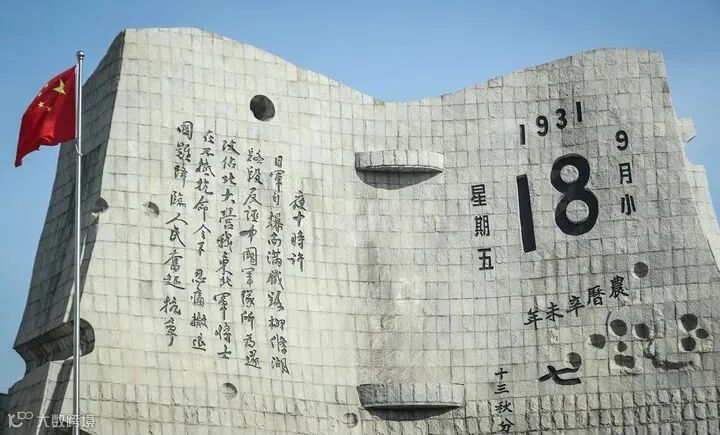 夜十時許
日軍自爆南滿鐵路柳條湖
路段反誣中國軍隊所為遂
攻佔北大營我東北軍將士
在不抵抗命令下忍痛撤退
國難降臨人民奮起抗爭
1931
9月小
18
星期五
農曆辛未年
七
十三秋分
大数跨境